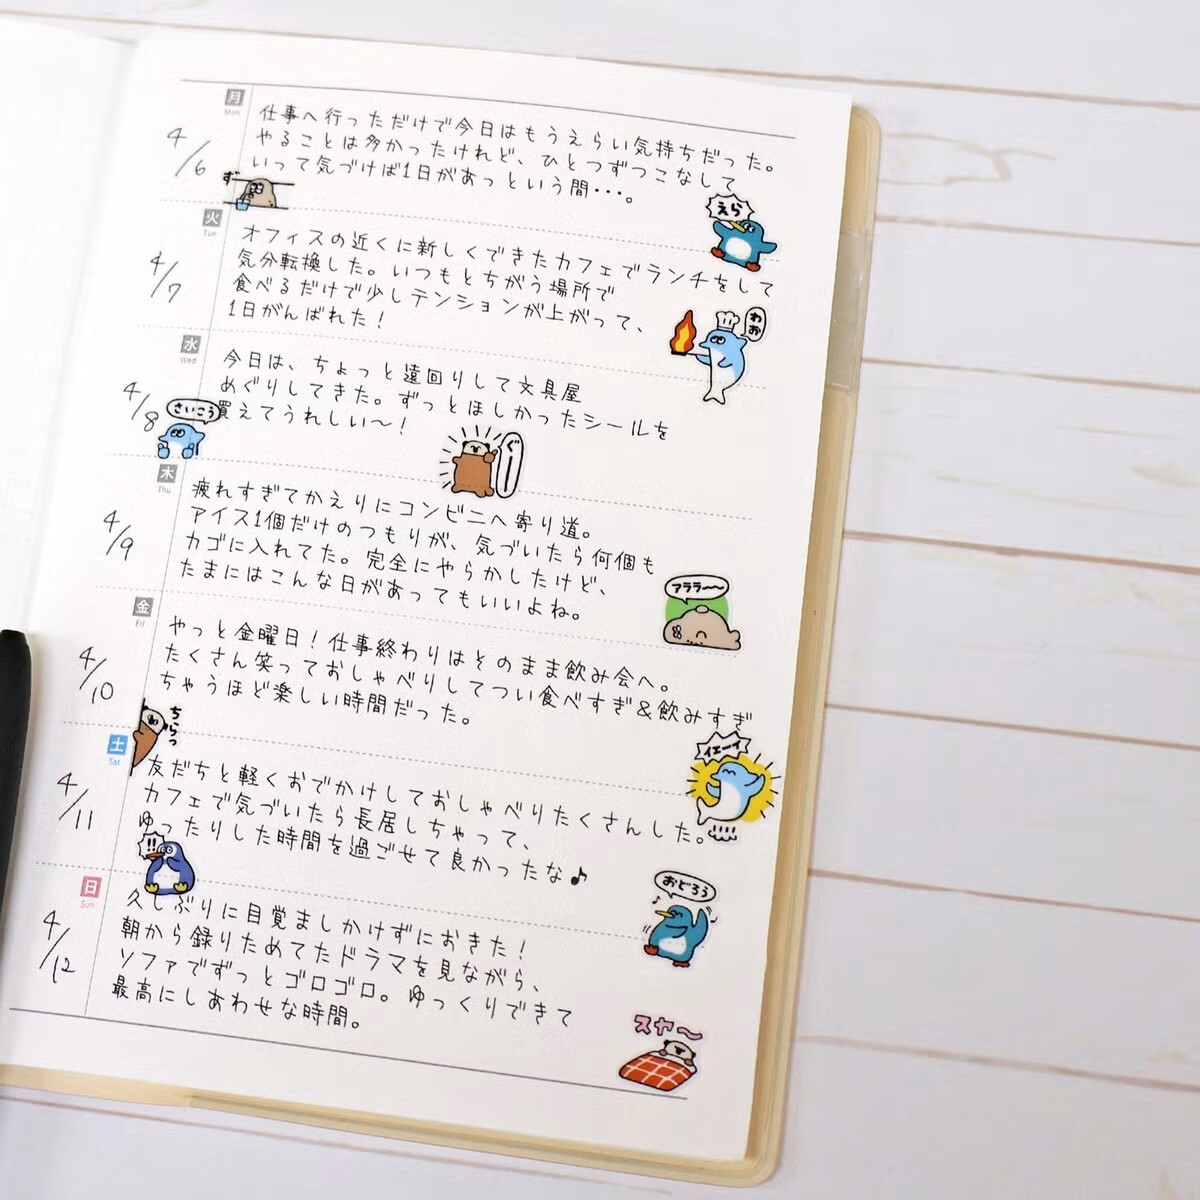 月
Mon
4/6
仕事へ行っただけで今日はもうえらい気持ちだった。
やることは多かったけれど、ひとつずつこなして
いって気づけば1日があっという間・・・。
ず
えら
火
Tue
4/7
オフィスの近くに新しくできたカフェでランチをして
気分転換した。いつもとちがう場所で
食べるだけで少しテンションが上がって、
1日がんばれた！
わお
水
Wed
4/8
今日は、ちょっと遠回りして文具屋
めぐりしてきた。ずっとほしかったシールを
買えてうれしい〜！
さいこう
ぐー
木
Thu
4/9
疲れすぎてかえりにコンビニへ寄り道。
アイス1個だけのつもりが、気づいたら何個も
カゴに入れてた。完全にやらかしたけど、
たまにはこんな日があってもいいよね。
アララ〜〜
金
Fri
4/10
やっと金曜日！仕事終わりはそのまま飲み会へ。
たくさん笑っておしゃべりしてつい食べすぎ&飲みすぎ
ちゃうほど楽しい時間だった。
ちらっ
イエーイ
土
Sat
4/11
友だちと軽くおでかけしておしゃべりたくさんした。
カフェで気づいたら長居しちゃって、
ゆったりした時間を過ごせて良かったな♪
!!
おどろう
日
Sun
4/12
久しぶりに目覚ましかけずにおきた！
朝から録りためてたドラマを見ながら、
ソファでずっとゴロゴロ。ゆっくりできて
最高にしあわせな時間。
スヤ〜